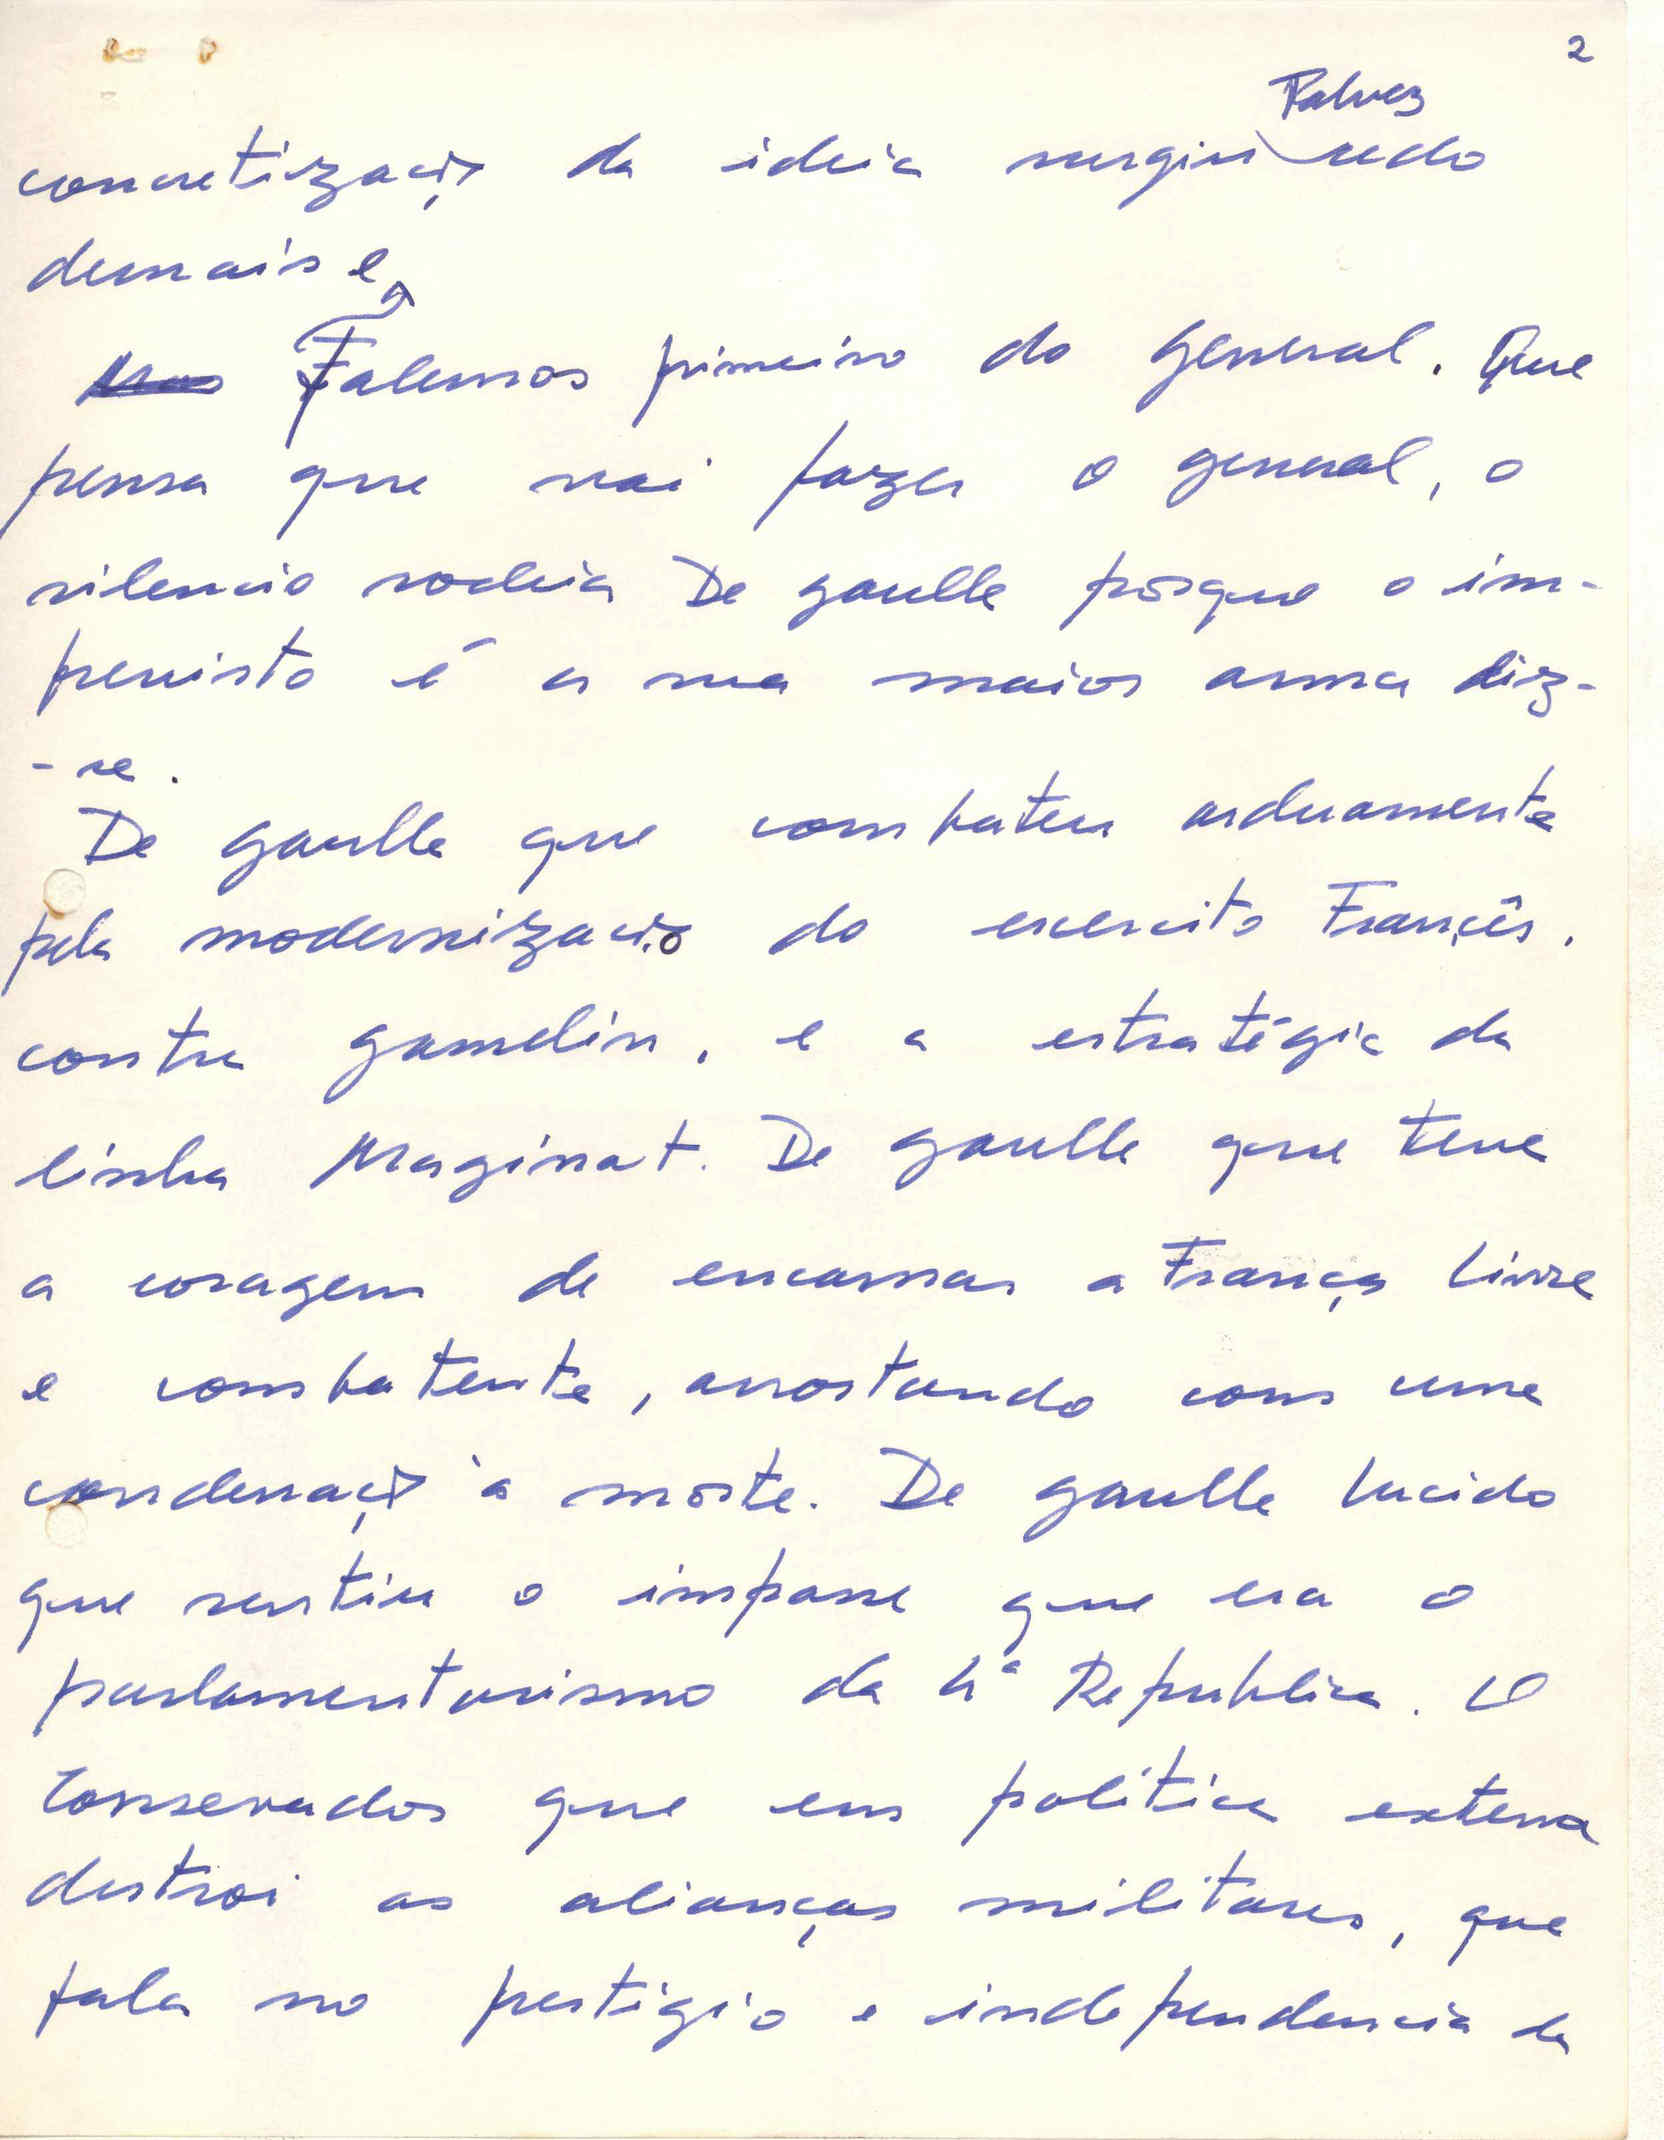 2
Talvez
concretização da ideia surgiu cedo
demais e
Mas Falemos primeiro do General. Que
pensa que vai fazer o general, o
silencio rodeia De Gaulle porque o im-
previsto é a sua maior arma diz-
-se.
De Gaulle que combateu arduamente
pela modernização do exercito Françês.
contra Gamelin, e a estratégia da
linha Maginat. De Gaulle que teve
a coragem de encarnar a França Livre
e combatente, arrostando com uma
condenação à morte. De Gaulle lucido
que sentiu o impasse que era o
parlamentarismo da 4ª Republica. O
Conservador que em política externa
destroi as alianças militares, que
fala no prestigio e independencia da